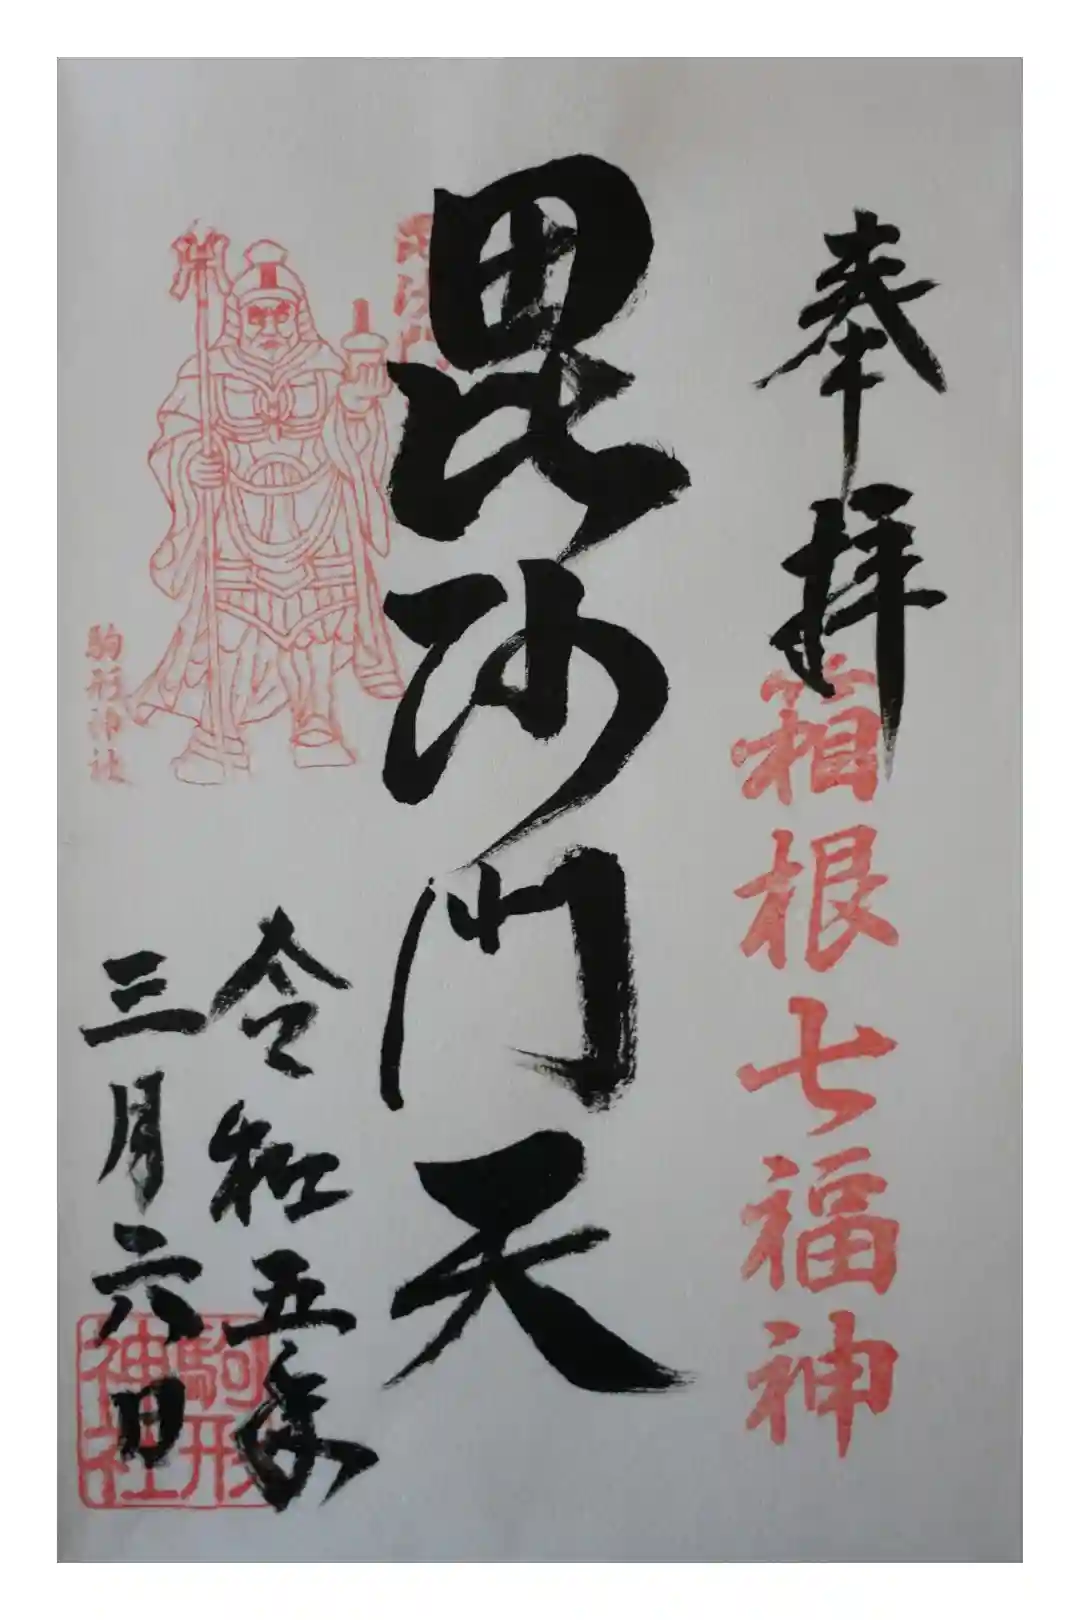 奉拝
箱根七福神
毘沙門天
毘沙門
駒形神社
令和五年
三月六日
駒形神社